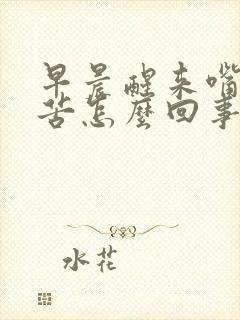 早晨醒来嘴
苦怎麽回事
水花